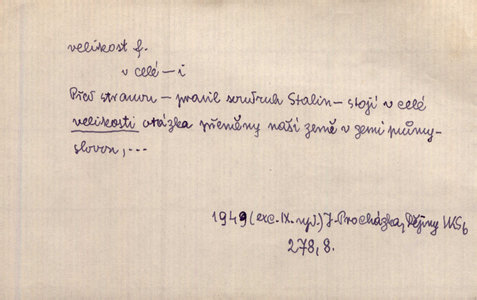 velikost f.
v celé – i
Před stranou – pravil soudruh Stalin – stojí v celé
velikosti otázka přeměny naší země v zemi průmy-
slovou, ...
1949 (exc. IX. vyd.) J. Procházka, Dějiny VKSb
278, 8.